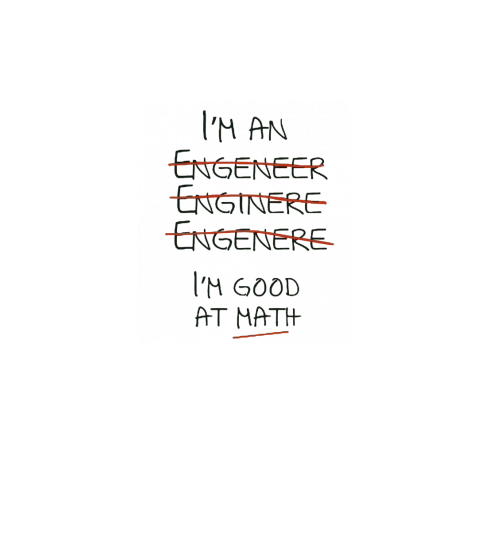 I'M AN
ENGENEER
ENGINERE
ENGENERE
I'M GOOD
AT MATH